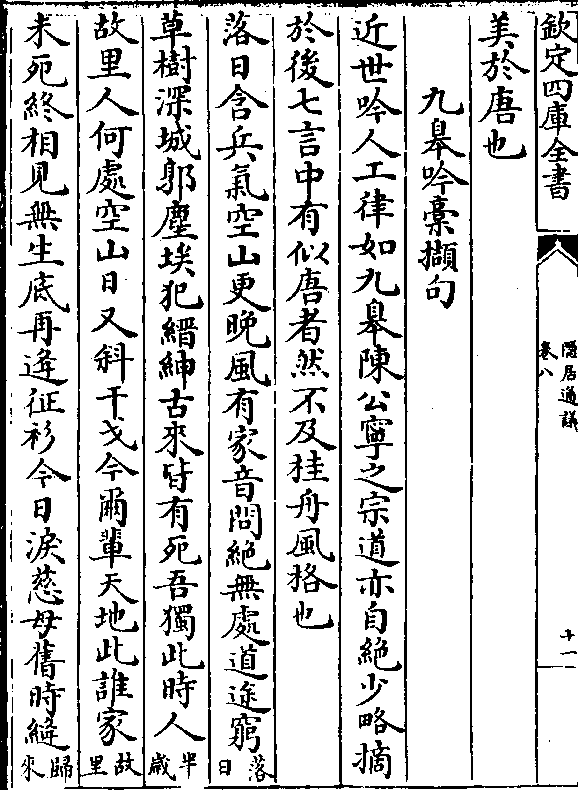 欽定四庫全書
隱居通議
卷八
十一
美於唐也
九臯吟藁擷句
近世吟人工律如九臯陳公寧之宗道亦自絶少略摘
於後七言中有似唐者然不及桂舟風格也
落日含兵氣空山更晚風有家音問絶無處道途窮落日
草樹深城郭塵埃犯縉紳古來皆有死吾獨此時人半歲
故里人何處空山日又斜干戈今爾輩天地此誰家故里
未死終相見無生底再逄征衫今日淚慈母舊時縫歸來